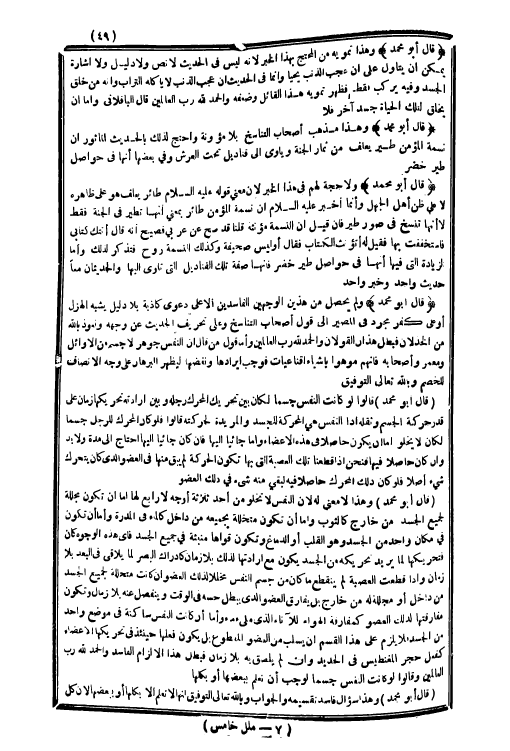 (٤٩)
﴿ قال أبو محمد ﴾ وهذا تمويه من المحتج بهذا الخبر لانه ليس فى الحديث لا نص ولا دليل ولا اشارة
يمكن أن يتاول على ان عجب الذنب يحيا وانما فى الحديث ان عجب الذنب لا ياكله التراب وانه من خلق
الجسد وفيه يركب فقط فظهر تمويه هذا القائل وضعفه والحمد لله رب العالمين قال الباقلانى واما ان
يخلق لتلك الحياة جسد آخر فلا
﴿ قال أبو محمد ﴾ وهذا مذهب أصحاب التناسخ بلا مؤونة واحتج لذلك بالحديث الماثور ان
نسمة المؤمن طير يعلف من ثمار الجنة وياوى الى قناديل تحت العرش وفى بعضها أنها فى حواصل
طير خضر
﴿ قال أبو محمد ﴾ ولا حجة لهم فى هذا الخبر لان معنى قوله عليه السلام طائر يعلف هو على ظاهره
لا على ظن أهل الجهل وأنما أخبر عليه السلام ان نسمة المؤمن طائر بمعنى أنها تطير فى الجنة فقط
لا أنها تنسخ فى صور طير فان قيل ان النسمة مؤنثة قلنا قد صح عن عربى فصيح أنه قال أتتك كتابى
فاستخففت بها فقيل له أتؤنث الكتاب فقال أوليس صحيفة وكذلك النسمة روح فتذكر لذلك وأما
الزيادة التى فيها أنها فى حواصل طير خضر فانها صفة تلك القناديل التى تاوى اليها والحديثان معا
حديث واحد وخبر واحد
﴿ قال ابو محمد ﴾ ولم يحصل من هذين الوجهين الفاسدين الا على دعوى كاذبة بلا دليل يشبه الهزل
أو على كفر مجرد فى المصير الى قول أصحاب التناسخ وعلى تحريف الحديث عن وجهه ونعوذ بالله
من الخذلان فبطل هذان القولان والحمد لله رب العالمين وأما قول من قال ان النفس جوهر لا جسم من الاوائل
ومعمر وأصحابه فانهم موهوا باشياء اقناعيات فوجب ايرادها ونقضها ليظهر البرهان على وجه الانصاف
للخصم وبالله تعالى التوفيق
( قال ابو محمد ) قالوا لو كانت النفس جسما لكان بين تحريك المحرك رجله و بين ارادته تحريكها زمان على
قدر حركة الجسم ونقله اذا النفس هى المحركة للجسد والمريدة لحركته قالوا فلو كان المحرك للرجل جسما
لكان لا يخلو اما ان يكون حاصلا فى هذه الاعضاء واما جائيا اليها فان كان جائيا اليها احتاج الى مدة ولا بد
وان كان حاصلا فيها فنحن اذا قطعنا تلك العصبة التى بها تكون الحركة لم يبق منها فى العضو الذى كان يتحرك
شىء أصلا فلو كان ذلك المحرك حاصلا فيه لبقى منه شىء فى ذلك العضو
( قال أبو محمد ) وهذا لا معنى له لان النفس لا تخلو من أحد ثلاثة أوجه لا رابع لها اما ان تكون مجللة
لجميع الجسد من خارج كالثوب واما أن تكون متخللة بجميعه من داخل كالماء فى المدرة واما أن تكون
فى مكان واحد من الجسد وهو القلب أو الدماغ وتكون قواها منبثة فى جميع الجسد فاى هذه الوجوه كان
فتحريكها لما يريد تحريكه من الجسد يكون مع ارادتها لذلك بلا زمان كادراك البصر لما يلاقى فى البعد بلا
زمان واذا قطعت العصبة لم ينقطع ما كان من جسم النفس مخللا لذلك العضو ان كانت متخللة لجميع الجسد
من داخل أو مجللة له من خارج بل يفارق العضو الذى يبطل حسه فى الوقت وينفصل عنه بلا زمان وتكون
مفارقتها لذلك العضو كمفارقة الهواء للاناء الذى ملىء ماء وأما أن كانت النفس ساكنة فى موضع واحد
من الجسد فلا يلزم على هذا القسم ان يسلب من العضو المقطوع بل يكون فعلها حينئذ فى تحريكها الاعضاء
كفعل حجر المغنطيس فى الحديد وان لم يلصق به بلا زمان فبطل هذا الالزام الفاسد والحمد لله رب
العالمين وقالوا لو كانت النفس جسما لوجب أن نعلم ببعضها أو بكلها
( قال أبو محمد ) وهذا سؤال فاسد تقسيمه والجواب وبالله تعالى التوفيق انها لا تعلم الا بكلها أو ببعضها لان كل
( ٧ — ملل خامس )